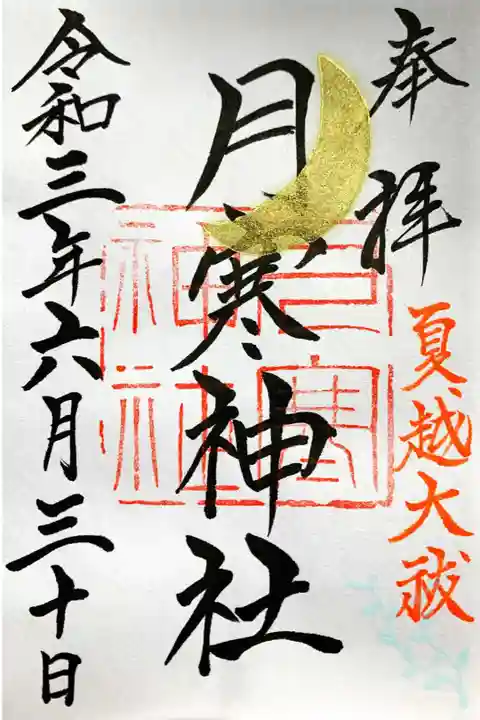 奉拝
夏越大祓
月寒神社
月寒
神社
令和三年六月三十日